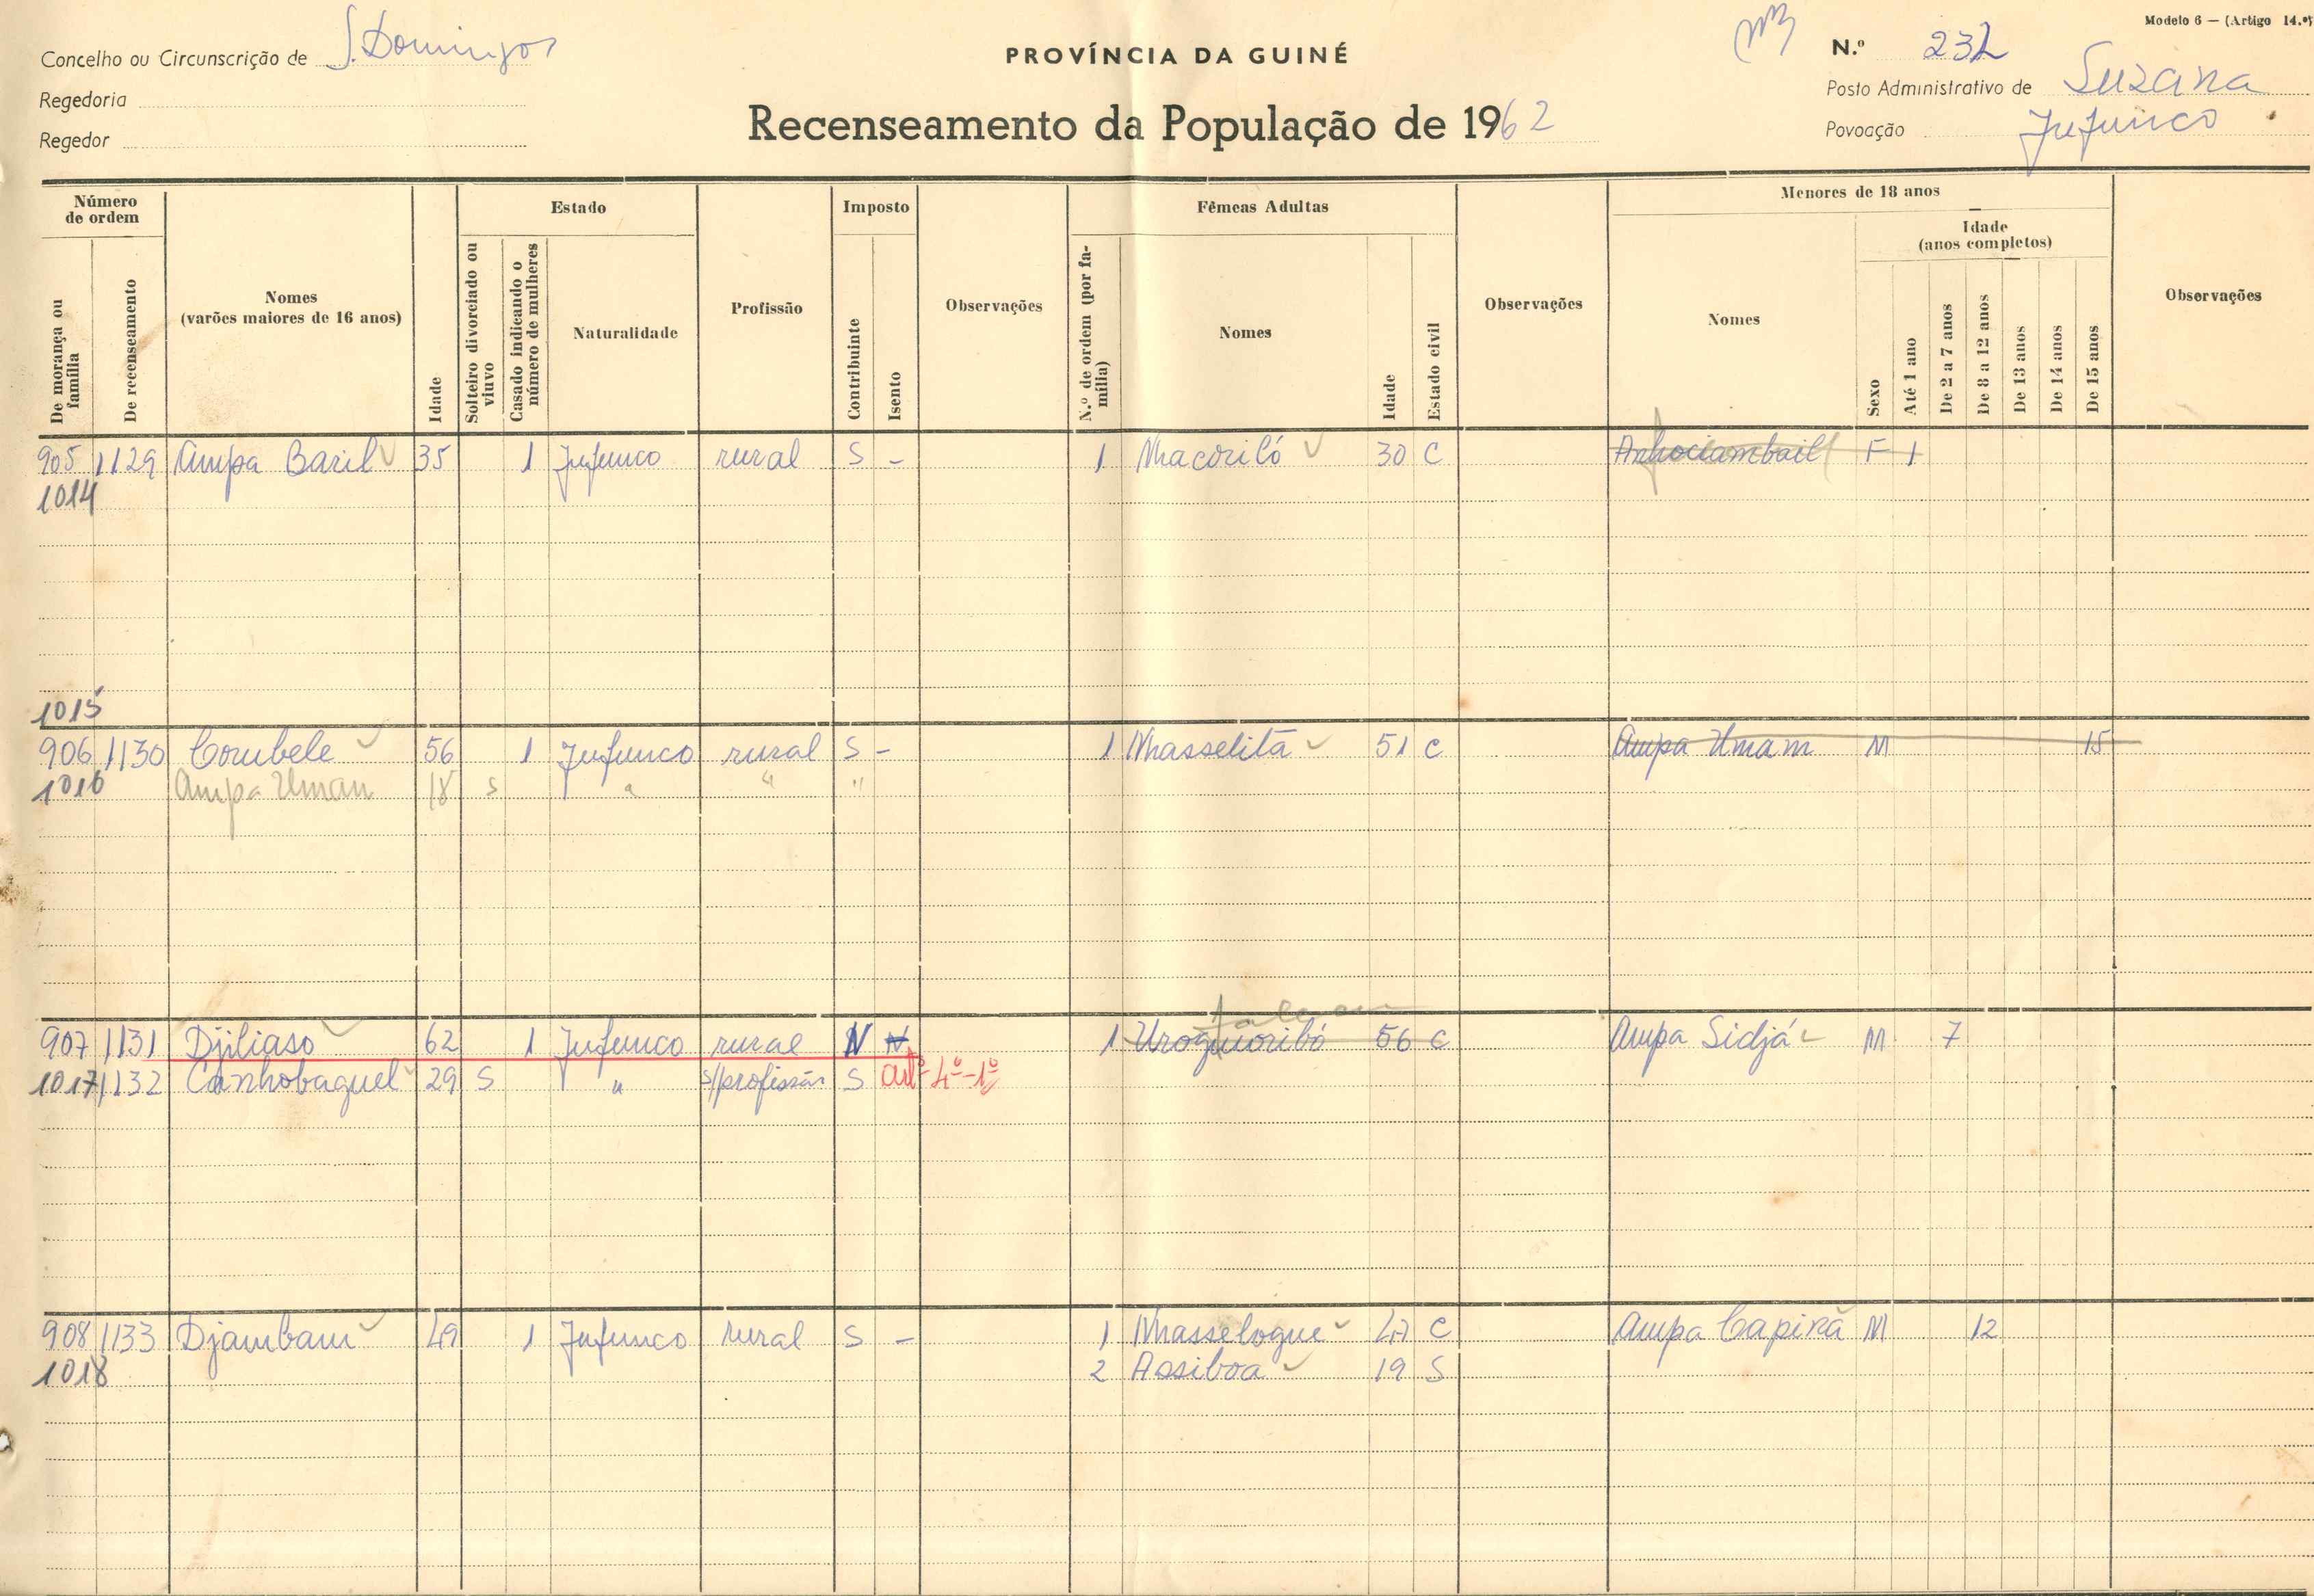 Modelo 6 — (Artigo 14.º)
Concelho ou Circunscrição de S. Domingos
PROVÍNCIA DA GUINÉ
N.º 232
Regedoria
Posto Administrativo de Suzana
Regedor
Recenseamento da População de 1962
Povoação Jufunco
Número de ordem
Estado
Imposto
Fêmeas Adultas
Menores de 18 anos
Idade (anos completos)
De morança ou família
De recenseamento
Nomes (varões maiores de 16 anos)
Idade
Solteiro divorciado ou viuvo
Casado indicando o número de mulheres
Naturalidade
Profissão
Contribuinte
Isento
Observações
N.º de ordem (por família)
Nomes
Idade
Estado civil
Observações
Nomes
Sexo
Até 1 ano
De 2 a 7 anos
De 8 a 12 anos
De 13 anos
De 14 anos
De 15 anos
Observações
905 1129 Ampa Baril 35 1 Jufunco rural S - 1 Nhacoriló 30 C Anhociambail F 1
1014
1015
906 1130 Corubele 56 1 Jufunco rural S - 1 Nhasselita 51 C Ampa Umam M 15
1016 Ampa Uman 18 S " " "
907 1131 Djiliaso 62 1 Jufunco rural N N 1 Uroquoribó 56 C Ampa Sidjá M 7
1017 1132 Canhobaquel 29 S " s/profissão S artº 4º-1º
908 1133 Djambam 49 1 Jufunco rural S - 1 Nhasselogue 47 C Ampa Capirã M 12
1018 2 Assiboa 19 S